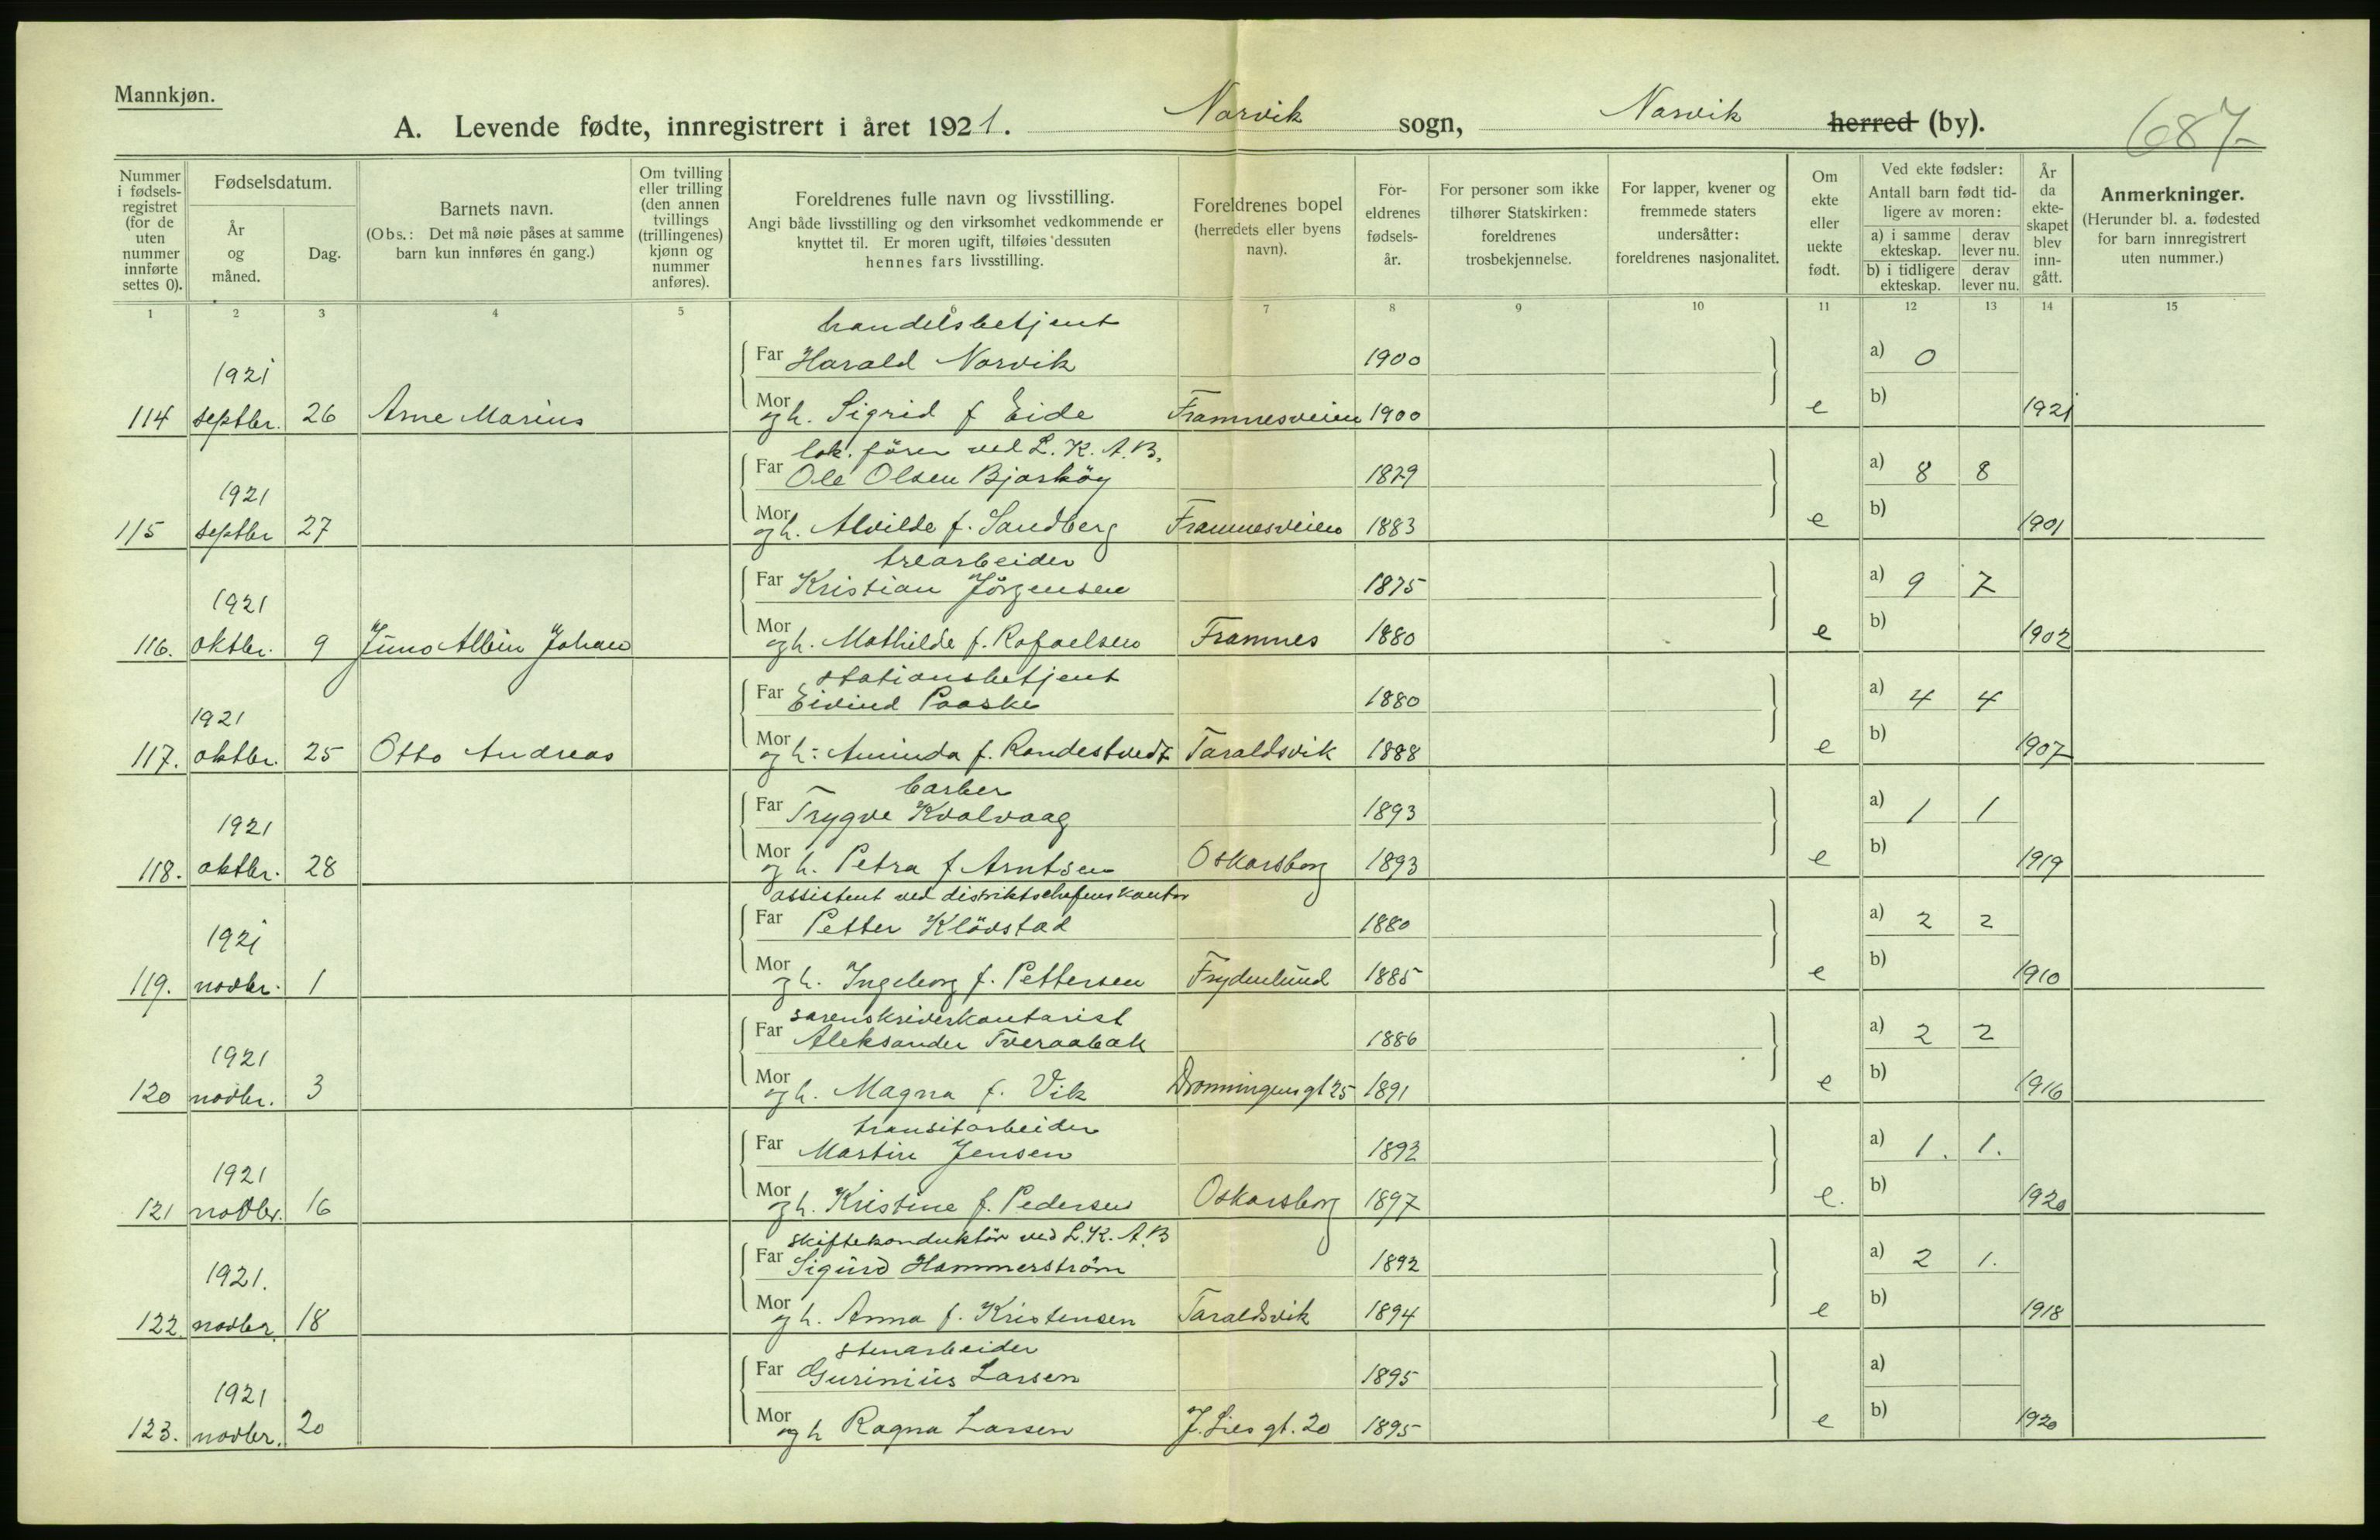 Mannkjøn.
A. Levende fødte, innregistrert i året 1921. Narvik sogn, Narvik herred (by). 687-
Nummer i fødsels-registret (for de uten nummer innførte settes 0).
Fødselsdatum.
År og måned.
Dag.
Barnets navn.
(Obs.: Det må nøie påses at samme barn kun innføres én gang.)
Om tvilling eller trilling (den annen tvillings (trillingenes) kjønn og nummer anføres).
Foreldrenes fulle navn og livsstilling.
Angi både livsstilling og den virksomhet vedkommende er knyttet til. Er moren ugift, tilføies dessuten hennes fars livsstilling.
Foreldrenes bopel (herredets eller byens navn).
For-eldrenes fødsels-år.
For personer som ikke tilhører Statskirken: foreldrenes trosbekjennelse.
For lapper, kvener og fremmede staters undersåtter: foreldrenes nasjonalitet.
Om ekte eller uekte født.
Ved ekte fødsler: Antall barn født tid-ligere av moren:
a) i samme ekteskap.
derav lever nu.
b) i tidligere ekteskap.
derav lever nu.
År da ekte-skapet blev inn-gått.
Anmerkninger.
(Herunder bl. a. fødested for barn innregistrert uten nummer.)
1 2 3 4 5 7 8 9 10 11 12 13 14 15
handelsbetjent
1921 Far Harald Narvik 1900 a) 0
114 septbr. 26 Arne Marius Mor og h. Sigrid f Eide Framnesveien 1900 e b) 1921
lok. förer ved L.K.A.B.
1921 Far Ole Olsen Bjarköy 1879 a) 8 8
115 septbr 27 Mor og h. Alvilde f. Sandberg Framnesveien 1883 e b) 1901
trearbeider
1921 Far Kristian Jörgensen 1875 a) 9 7
116. oktbr. 9 Juno Albin Johan Mor og h. Mathilde f. Rafaelsen Framnes 1880 e b) 1902
stationsbetjent
1921 Far Eivind Paaske 1880 a) 4 4
117. oktbr. 25 Otto Andreas Mor og h. Aminda f. Randestvedt Taraldsvik 1888 e b) 1907
barber
1921 Far Trygve Kvalvaag 1893 a) 1 1
118. oktbr. 28 Mor og h. Petra f Arntsen Oskarsborg 1893 e b) 1919
assistent ved distriktschefens kontor
1921 Far Petter Klövstad 1880 a) 2 2
119. novbr. 1 Mor og h. Ingeborg f. Pettersen Frydenlund 1885 e b) 1910
sorenskriverkontorist
1921 Far Aleksander Tveraabak 1886 a) 2 2
120 novbr. 3 Mor og h. Magna f. Vik Dronningensgt 25 1891 e b) 1916
transitarbeider
1921 Far Martin Jensen 1892 a) 1. 1.
121 novbr. 16 Mor og h. Kristine f. Pedersen Oskarsborg 1897 e. b) 1920
skiftekonduktör ved L.K.A.B
1921. Far Sigurd Hammerström 1892 a) 2 1.
122. novbr. 18 Mor og h. Anna f. Kristensen Taraldsvik 1894 e b) 1918
stenarbeider
1921 Far Gurinius Larsen 1895 a)
123. novbr. 20 Mor og h Ragna Larsen J. Lies gt. 20 1895 e b) 1920